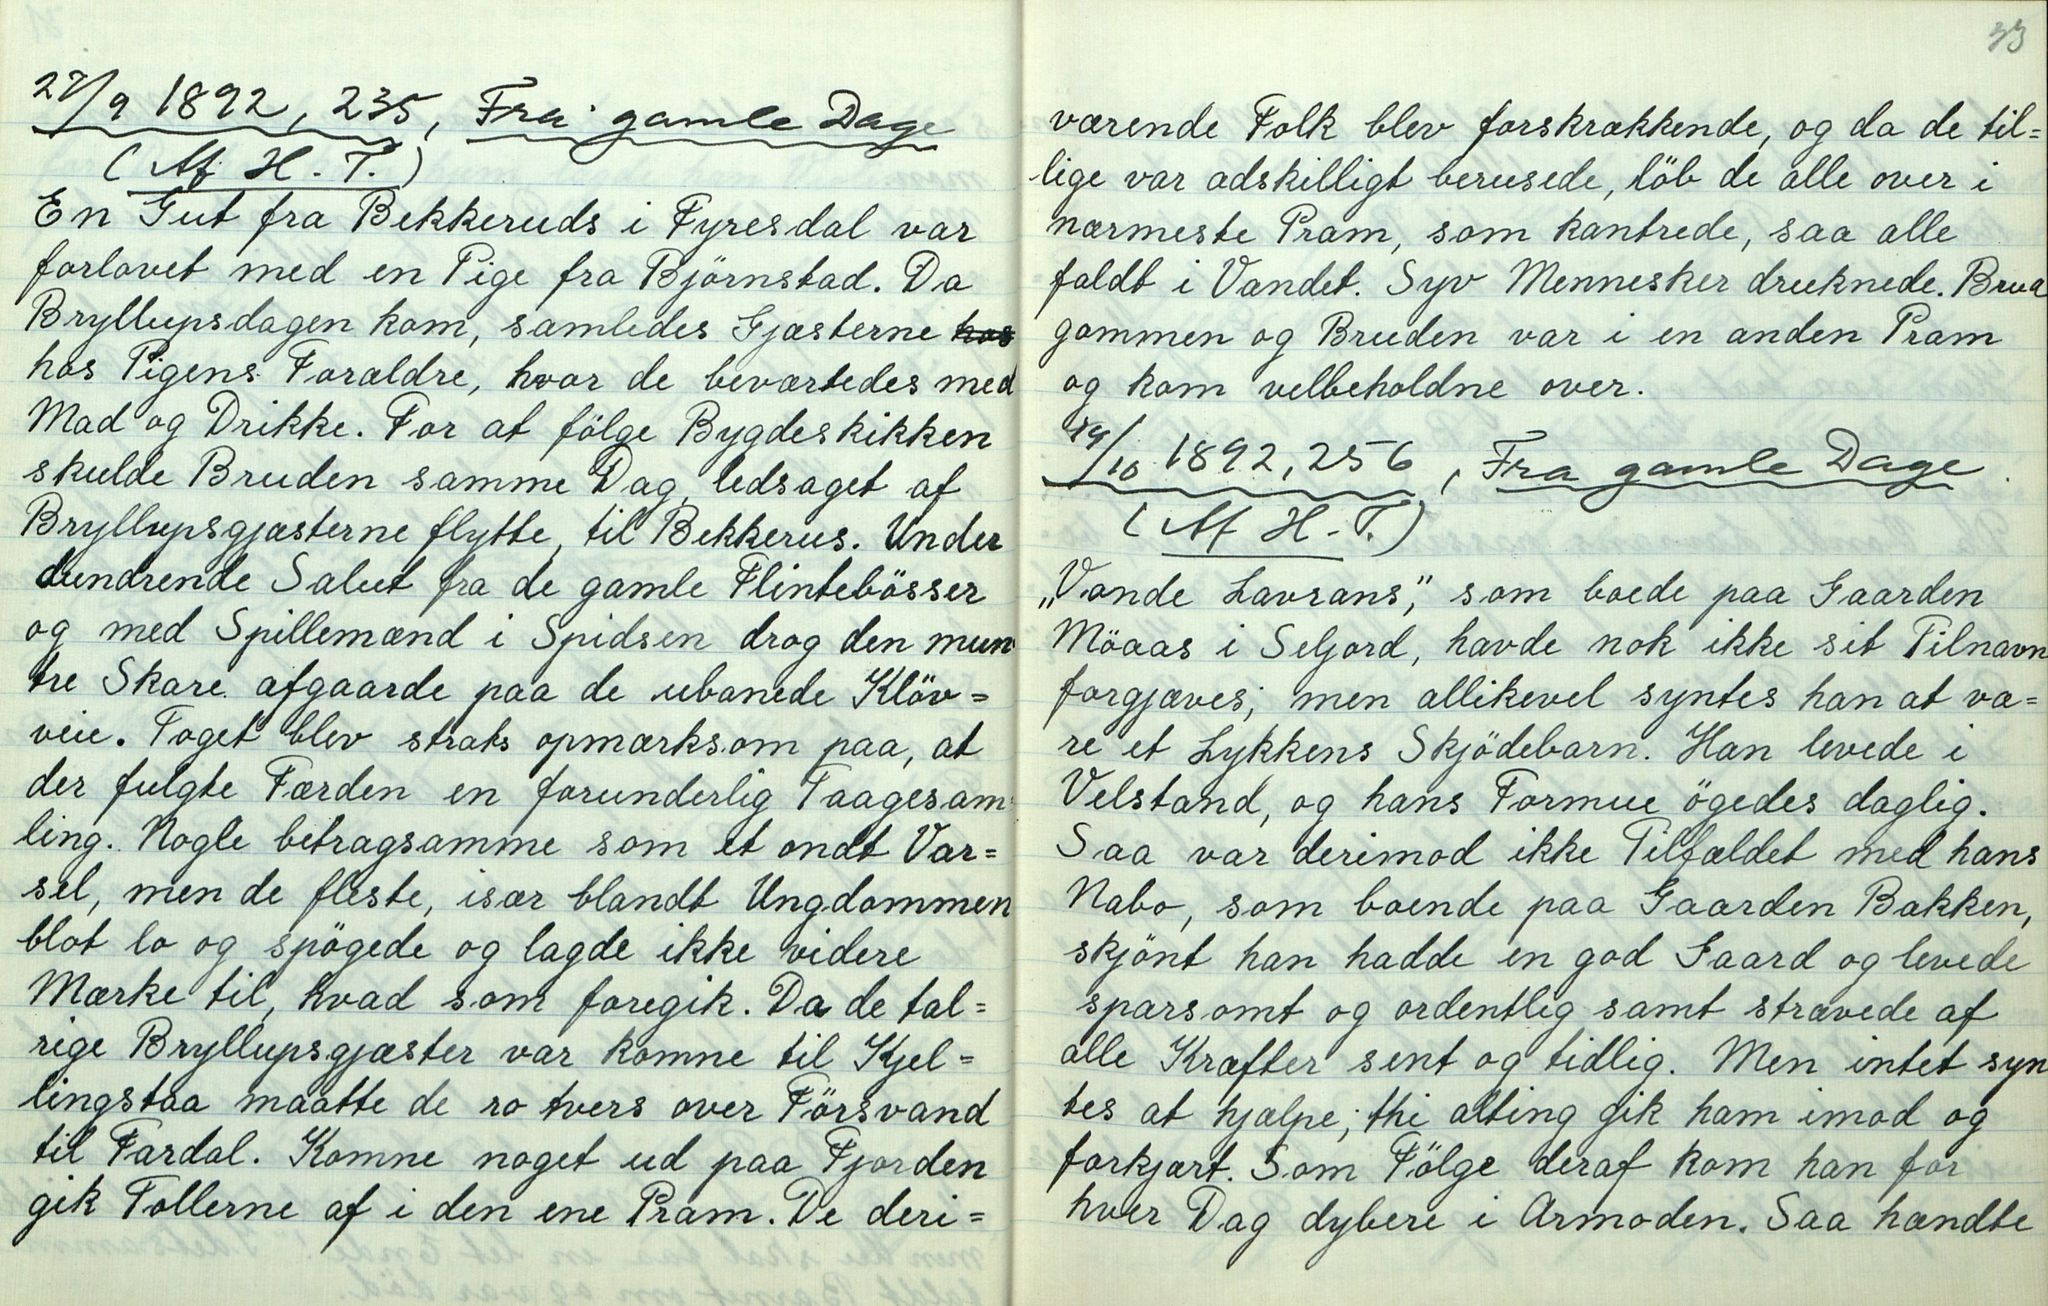 27/9 1892, 235, Fra gamle Dage
(Af H. T.)
En Gut fra Bekkeruds i Fyresdal var
forlovet med en Pige fra Björnstad. Da
Bryllupsdagen kom, samledes Gjæsterne hos
hos Pigens Forældre, hvor de beværtedes med
Mad og Drikke. For at fölge Bygdeskikken
skulde Bruden samme Dag, ledsaget af
Bryllupsgjæsterne flytte, til Bekkerus. Under
dundrende Salut fra de gamle Flintebösser
og med Spillemænd i Spidsen drog den mun-
tre Skare afgaarde paa de ubanede Klöv=
veie. Toget blev straks opmærksom paa, at
der fulgte Færden en forunderlig Taagesam-
ling. Nogle betragsamme som et ondt Var=
sel, men de fleste, især blandt Ungdommen
blot lo og spögede og lagde ikke videre
Mærke til, hvad som foregik. Da de tal=
rige Bryllupsgjæster var komne til Kjel=
lingstaa maatte de ro tvers over Försvand
til Fardal. Komne noget ud paa Fjorden
gik Tollerne af i den ene Pram. De deri=
33
værende Folk blev forskrækkende, og da de til=
lige var adskilligt berusede, löb de alle over i
nærmeste Pram, som kantrede, saa alle
faldt i Vandet. Syv Mennesker druknede. Brud
gommen og Bruden var i en anden Pram
og kom velbeholdne over.
14/10 1892, 256, Fra gamle Dage
(Af H. T.)
„Vonde Lavrans“, som boede paa Gaarden
Möaas i Seljord, havde nok ikke sit Tilnavn
forgjæves; men allikevel syntes han at væ=
re et Lykkens Skjödebarn. Han levede i
Velstand, og hans Formue ögedes daglig.
Saa var derimod ikke Tilfældet med hans
Nabo, som boende paa Gaarden Bakken,
skjönt han hadde en god Gaard og levede
sparsomt og ordentlig samt strævede af
alle Kræfter sent og tidlig. Men intet syn
tes at hjælpe; thi alting gik ham imod og
forkjært. Som Fölge deraf kom han for
hver Dag dybere i Armoden. Saa hændte